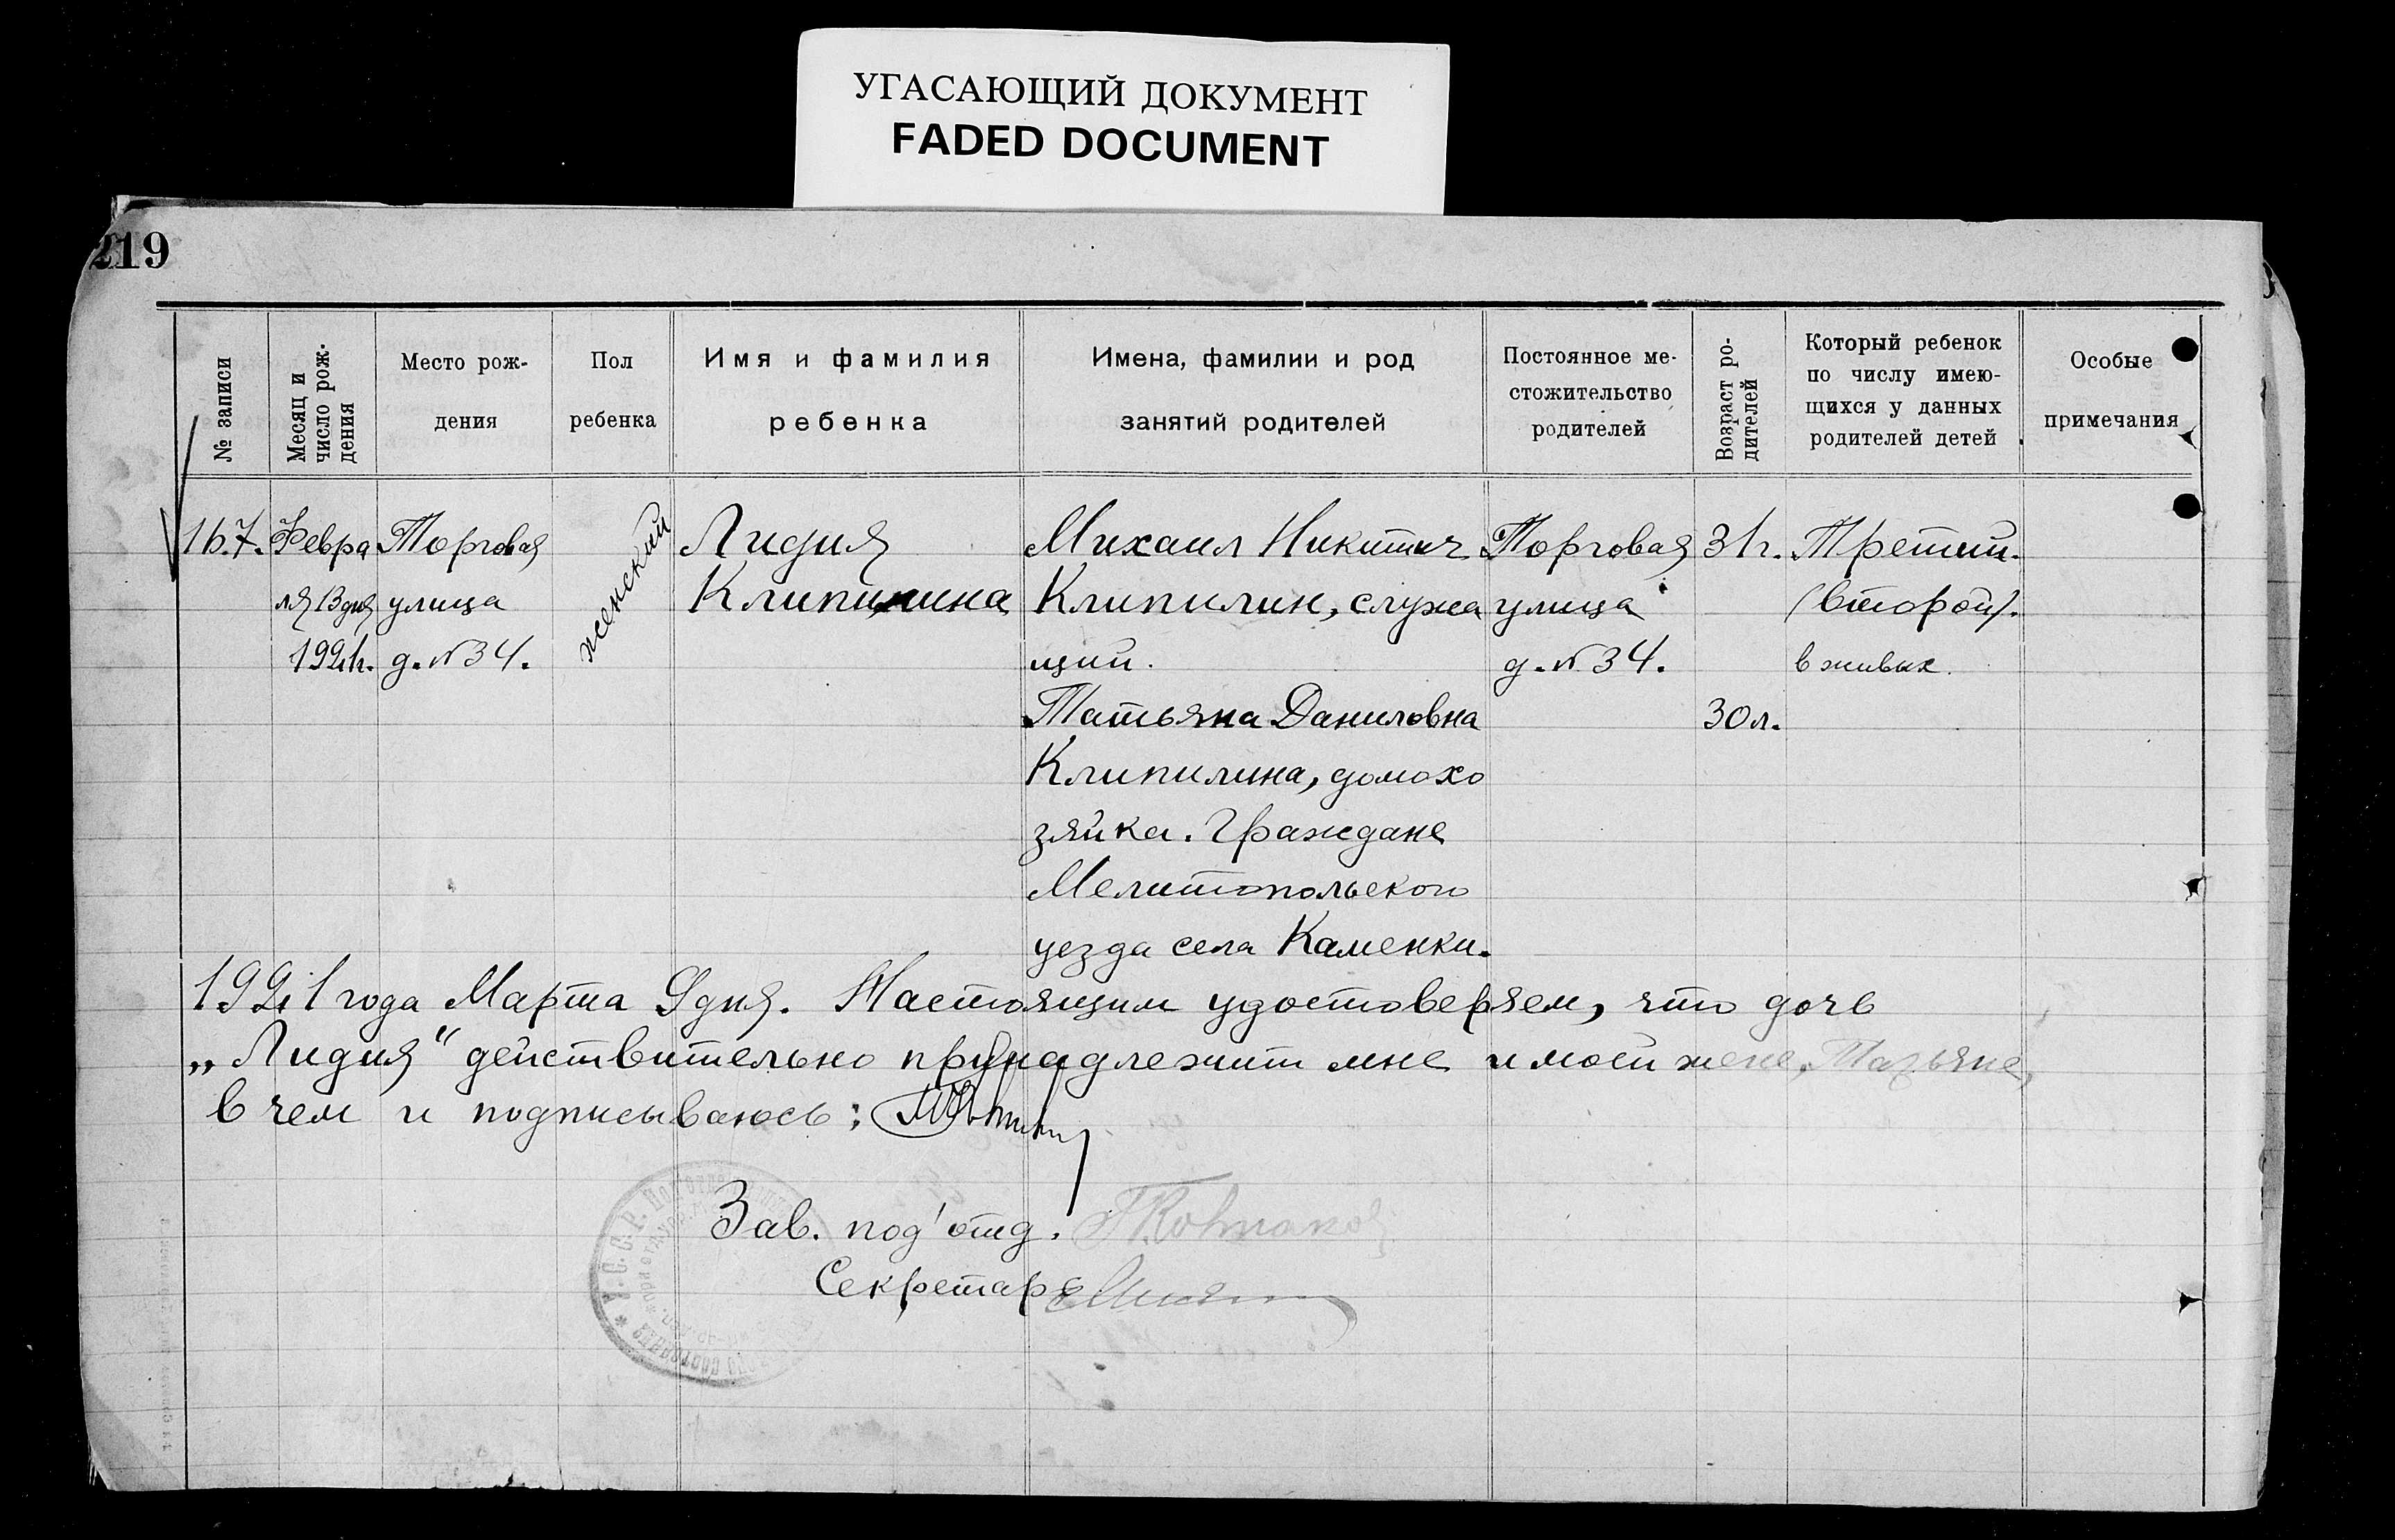 УГАСАЮЩИЙ ДОКУМЕНТ
FADED DOCUMENT
219
№ записи
Месяц и
число рож-
дения
Место рож-
дения
Пол
ребенка
Имя и фамилия
ребенка
Имена, фамилии и род
занятий родителей
Постоянное ме-
стожительство
родителей
Возраст ро-
дителей
Который ребенок
по числу имею-
щихся у данных
родителей детей
Особые
примечания
167.
Февра
ля 13 дня
1921г.
Торговая
улица
д. № 34.
женский
Лидия
Клипилина
Михаил Никитич
Клипилин, служа
щий.
Татьяна Даниловна
Клипилина, домохо
зяйка. Граждане
Мелитопольского
уезда села Каменки.
Торговая
улица
д. № 34.
31г.
30л.
Третий.
(второй).
в живых.
1921 года Марта 9 дня. Настоящим удостоверяем, что дочь
„Лидия“ действительно принадлежит мне и моей жене, Татьяне,
в чем и подписываюсь:
Зав. под'отд.
Секретарь